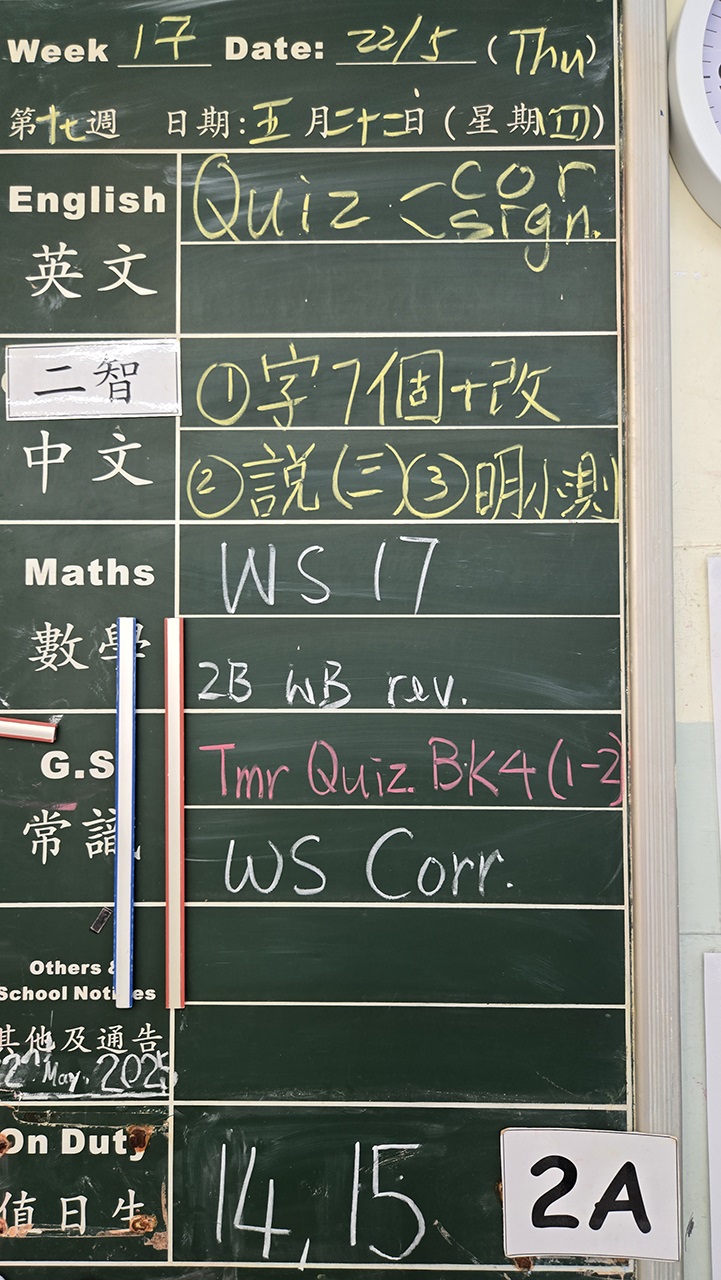 Week 17 Date: 22/5 (Thu)
第十七週 日期:五月二十二日(星期四)
English Quiz < cor
sign.
英文
二智 ①字7個+改
中文 ②説(三)③明小測
Maths WS 17
數學 2B WB rev.
G.S Tmr Quiz. BK4(1-2)
常識 WS Corr.
Others &
School Notices
其他及通告
May. 2025
On Duty 14, 15
值日生
2A